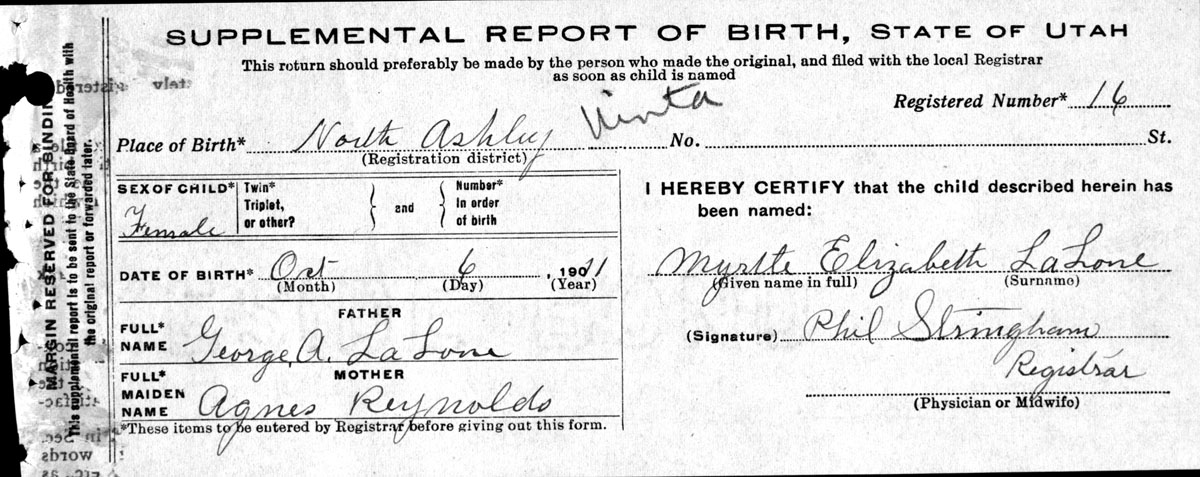 SUPPLEMENTAL REPORT OF BIRTH, STATE OF UTAH
This return should preferably be made by the person who made the original, and filed with the local Registrar
as soon as child is named
Registered Number* 16
Place of Birth* North Ashley Uinta No. St.
(Registration district)
SEX OF CHILD* Female
Twin*
Triplet,
or other?
and
Number*
In order
of birth
DATE OF BIRTH* Oct 6, 1911
(Month) (Day) (Year)
FATHER
FULL*
NAME George A. LaLone
MOTHER
FULL*
MAIDEN
NAME Agnes Reynolds
*These items to be entered by Registrar before giving out this form.
I HEREBY CERTIFY that the child described herein has
been named:
Myrtte Elizabeth LaLone
(Given name in full) (Surname)
(Signature) Phil Stringham
Registrar
(Physician or Midwife)
MARGIN RESERVED FOR BINDING
This supplemental report is to be sent to the State Board of Health with
the original report or forwarded later.